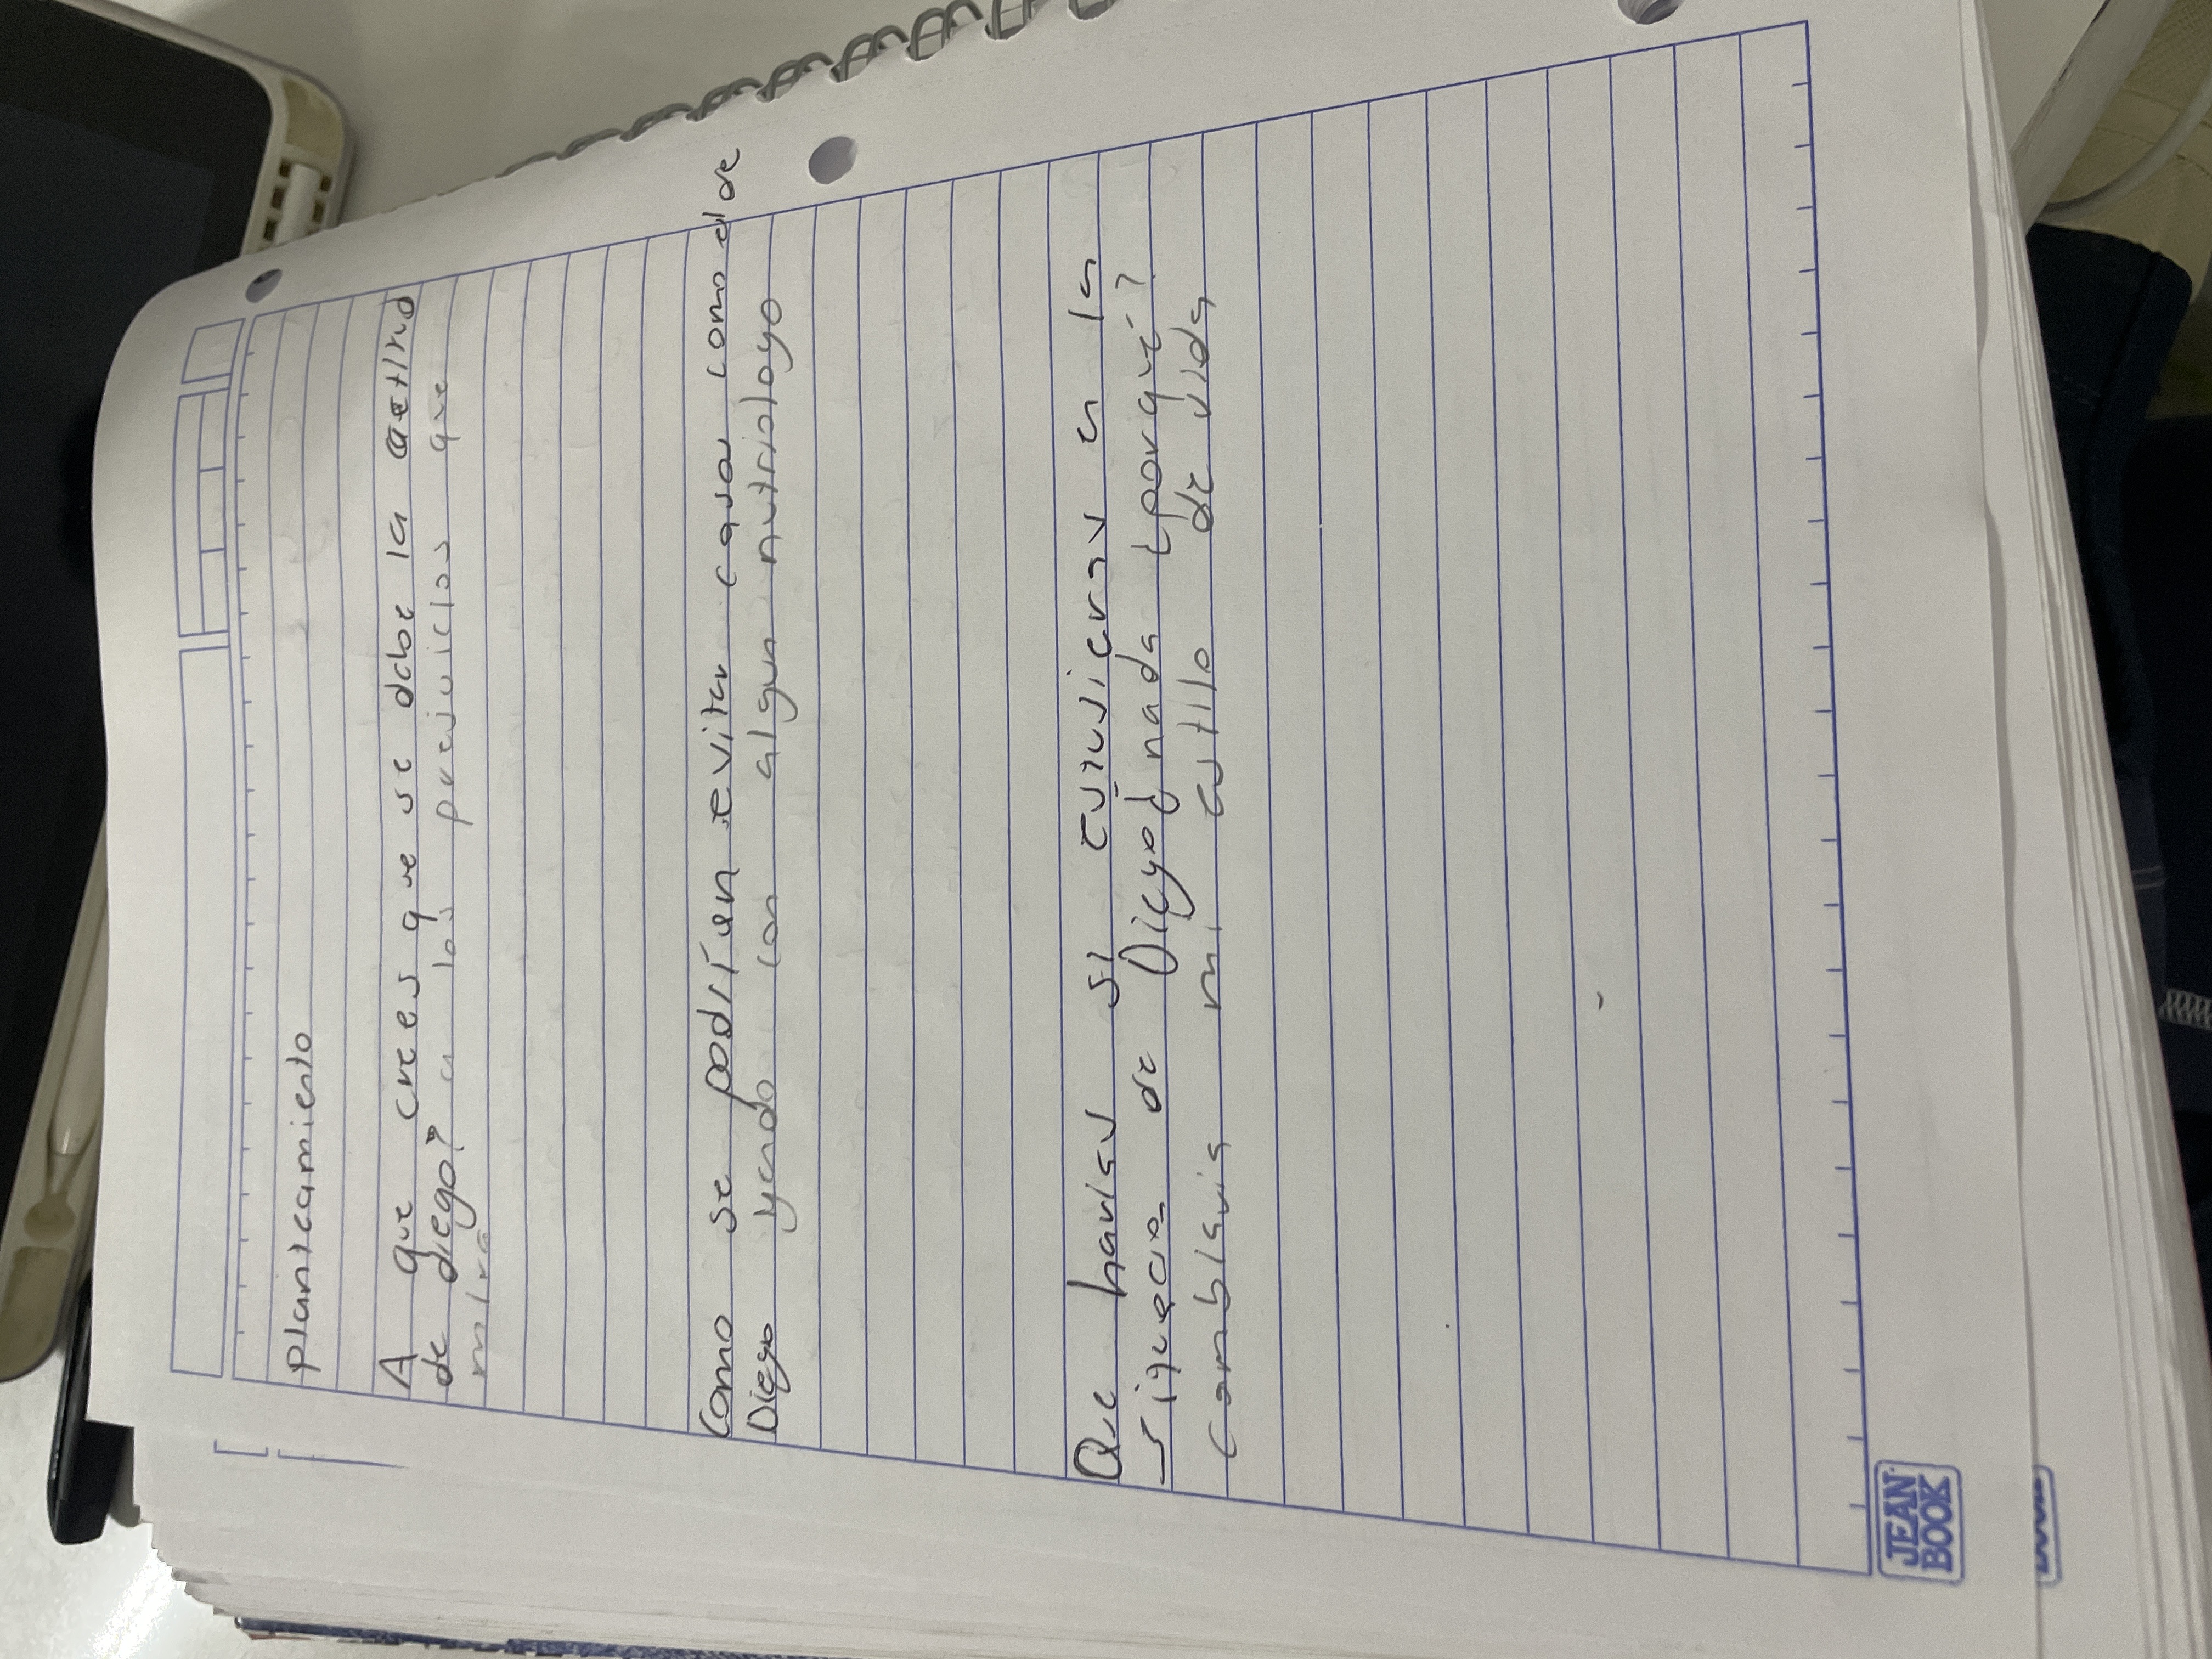 planteamiento
A que crees que se debe la actitud
de diego? a los prejuicios que
mira
Como se podrían evitar casos como el de
Diego yendo con algun nutriologo
Que harias si estuvieras en la
situacion de Diego nada ¿porqué?
cambiaria mi estilo de vida
JEAN
BOOK